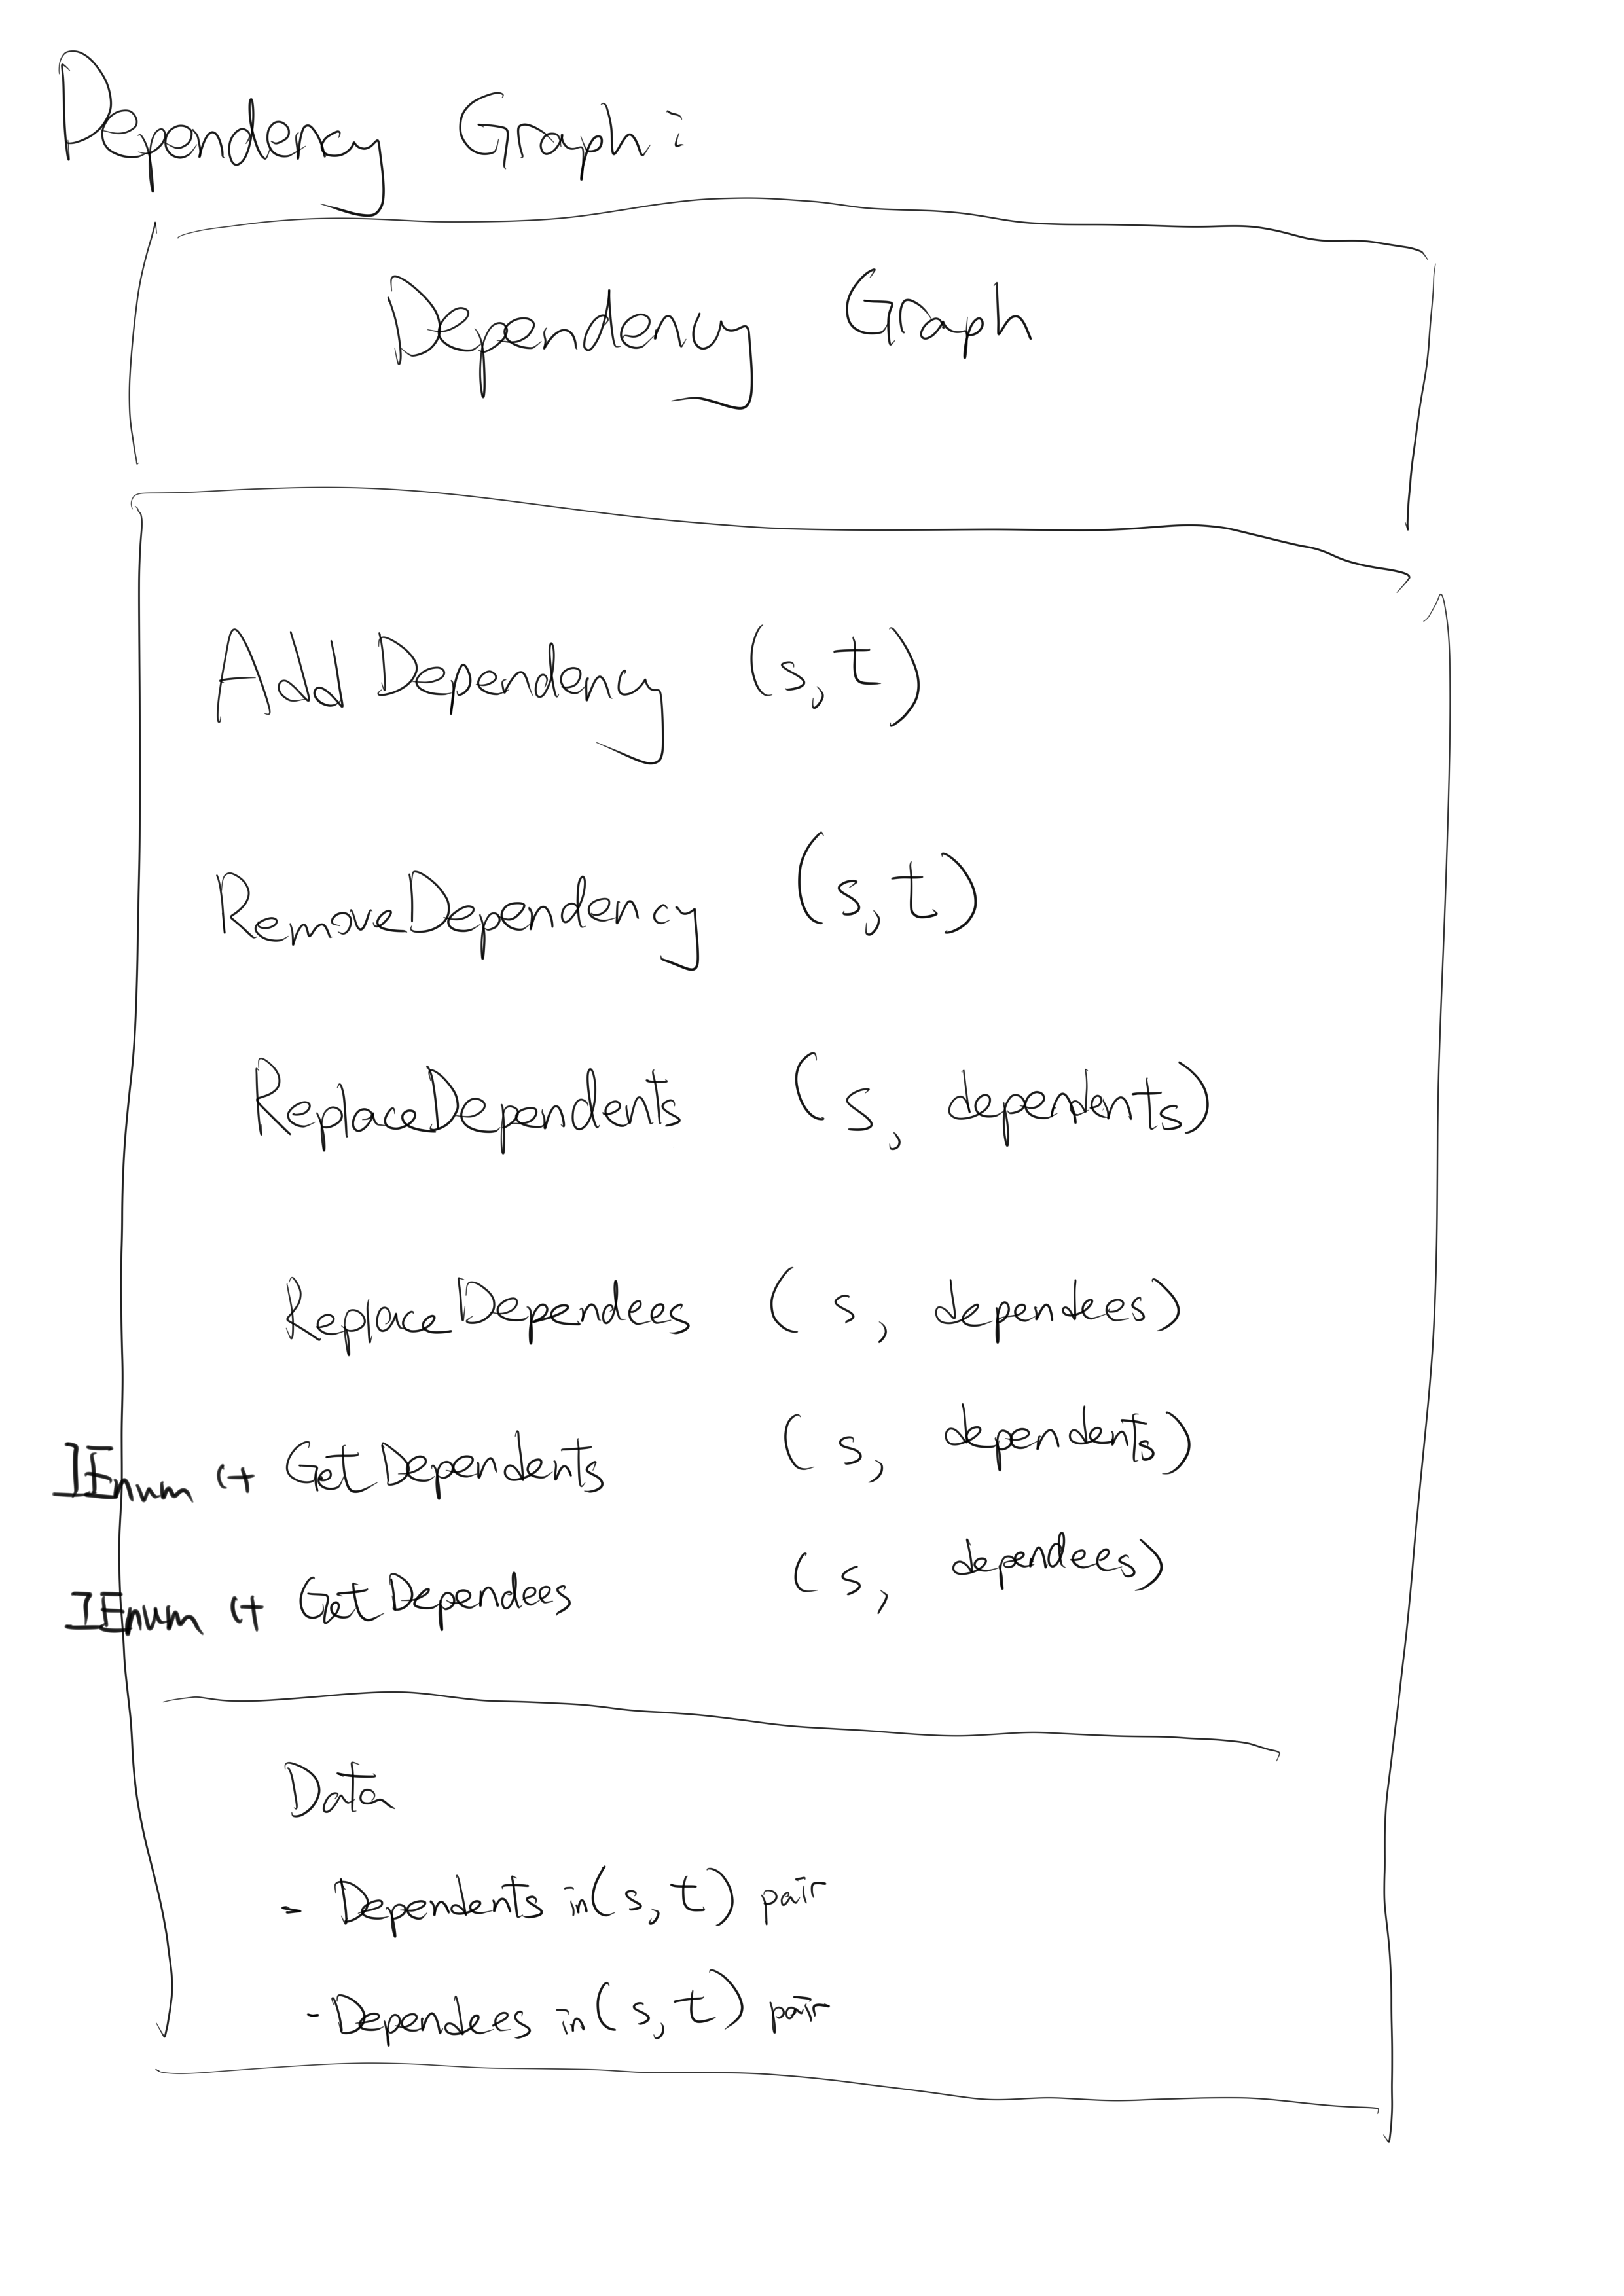 Dependency Graph:
Dependency Graph
AddDependency (s,t)
RemoveDependency (s,t)
ReplaceDependents (s, dependents)
ReplaceDependees (s, dependees)
IEnum GetDependents (s, dependents)
IEnum GetDependees (s, dependees)
Data
- Dependents in (s,t) pair
- Dependees in (s,t) pair